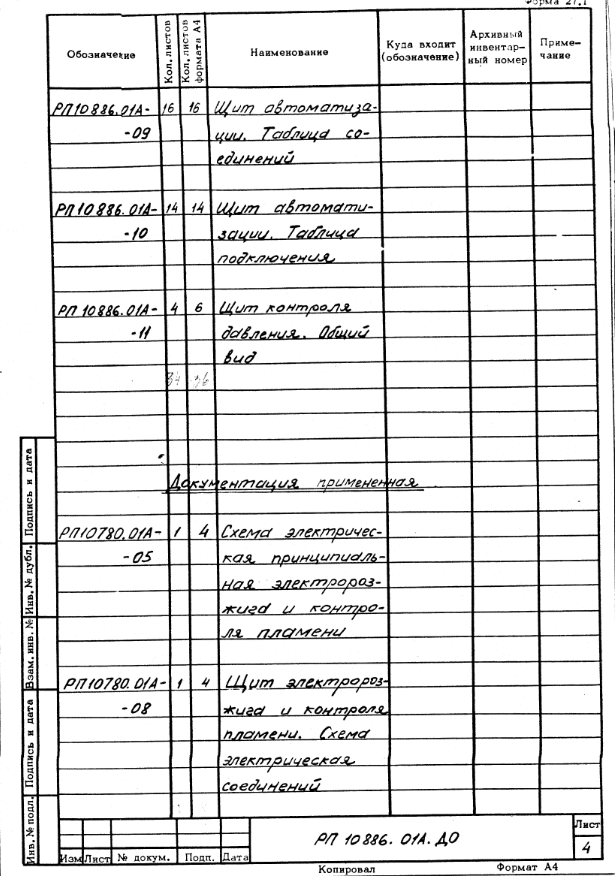 Форма 27.1
Обозначение Кол. листов Кол. листов формата А4 Наименование Куда входит (обозначение) Архивный инвентарный номер Примечание
РП10886.01А- 16 16 Щит автоматиза-
-09 ции. Таблица со-
единений
РП10886.01А- 14 14 Щит автомати-
-10 зации. Таблица
подключения
РП 10886.01А- 4 6 Щит контроля
-11 давления. Общий
вид
34 36
Документация примененная
РП10780.01А- 1 4 Схема электричес-
-05 кая принципиаль-
ная электророз-
жига и контро-
ля пламени
РП10780.01А- 1 4 Щит электророз-
-08 жига и контроля
пламени. Схема
электрическая
соединений
Инв. № подл. Подпись и дата Взам. инв. № Инв. № дубл. Подпись и дата
РП 10886. 01А. ДО
Лист
4
Изм Лист № докум. Подп. Дата
Копировал Формат А4